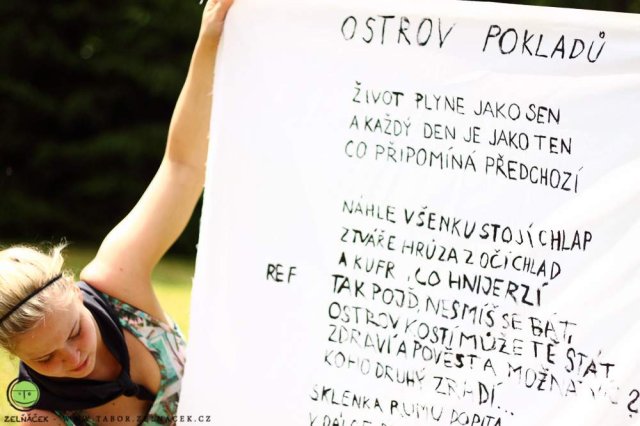 OSTROV POKLADŮ
ŽIVOT PLYNE JAKO SEN
A KAŽDÝ DEN JE JAKO TEN
CO PŘIPOMÍNÁ PŘEDCHOZÍ
NÁHLE V ŠENKU STOJÍ CHLAP
Z TVÁŘE HRŮZA Z OČÍ CHLAD
A KUFR, CO HNIJE RZÍ
REF TAK POJĎ, NESMÍŠ SE BÁT,
OSTROV KOSTÍ MŮŽE TĚ STÁT
ZDRAVÍ A POVĚST A MOŽNÁ VÍC?
KOHO DRUHÝ ZRADÍ...
SKLENKA RUMU DOPITA
V DÁLCE
ZELŇÁČEK - WWW.TABOR.ZELNACEK.CZ